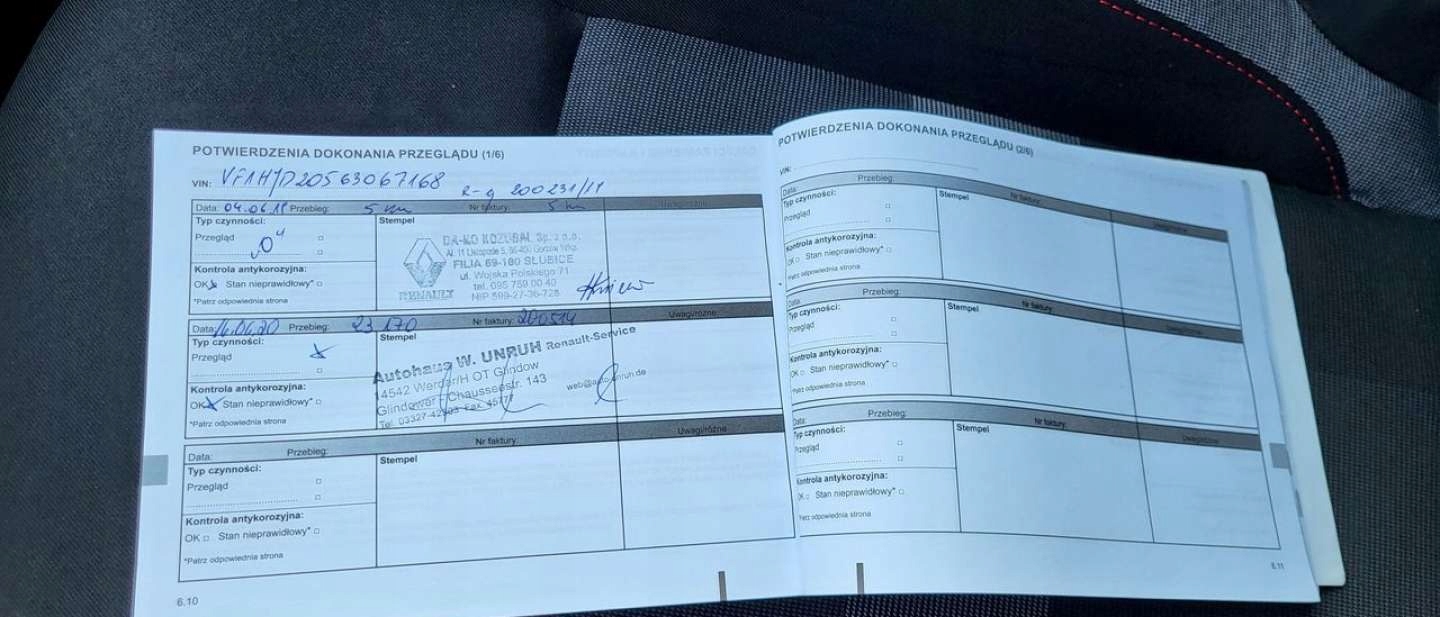 POTWIERDZENIA DOKONANIA PRZEGLĄDU (1/6)
VIN: VF1HJD20563067168 R-g 200231/19
Data: 04.06.19 Przebieg: 5 km Nr faktury: 5 km Uwagi/różne
Typ czynności: Stempel
Przegląd "0"
Kontrola antykorozyjna:
OK Stan nieprawidłowy*
*Patrz odpowiednia strona
DA-KO KOZUBAL Sp. z o.o.
FILIA 69-100 SŁUBICE
ul. Wojska Polskiego 71
tel. 095 759 00 40
NIP 599-27-36-726
RENAULT
Data: 16.06.20 Przebieg: 23 170 Nr faktury: 200514 Uwagi/różne
Typ czynności: Stempel
Przegląd
Kontrola antykorozyjna:
OK Stan nieprawidłowy*
*Patrz odpowiednia strona
Autohaus W. UNRUH Renault-Service
14542 Werder/H OT Glindow
Glindower Chausseestr. 143
Tel. 03327-42903 Fax 45777
Data: Przebieg: Nr faktury: Uwagi/różne
Typ czynności: Stempel
Przegląd
Kontrola antykorozyjna:
OK Stan nieprawidłowy*
*Patrz odpowiednia strona
6.10
POTWIERDZENIA DOKONANIA PRZEGLĄDU (2/6)
VIN:
Data: Przebieg: Nr faktury: Uwagi/różne
Typ czynności: Stempel
Przegląd
Kontrola antykorozyjna:
OK Stan nieprawidłowy*
*Patrz odpowiednia strona
Data: Przebieg: Nr faktury: Uwagi/różne
Typ czynności: Stempel
Przegląd
Kontrola antykorozyjna:
OK Stan nieprawidłowy*
*Patrz odpowiednia strona
Data: Przebieg: Nr faktury: Uwagi/różne
Typ czynności: Stempel
Przegląd
Kontrola antykorozyjna:
OK Stan nieprawidłowy*
*Patrz odpowiednia strona
6.11